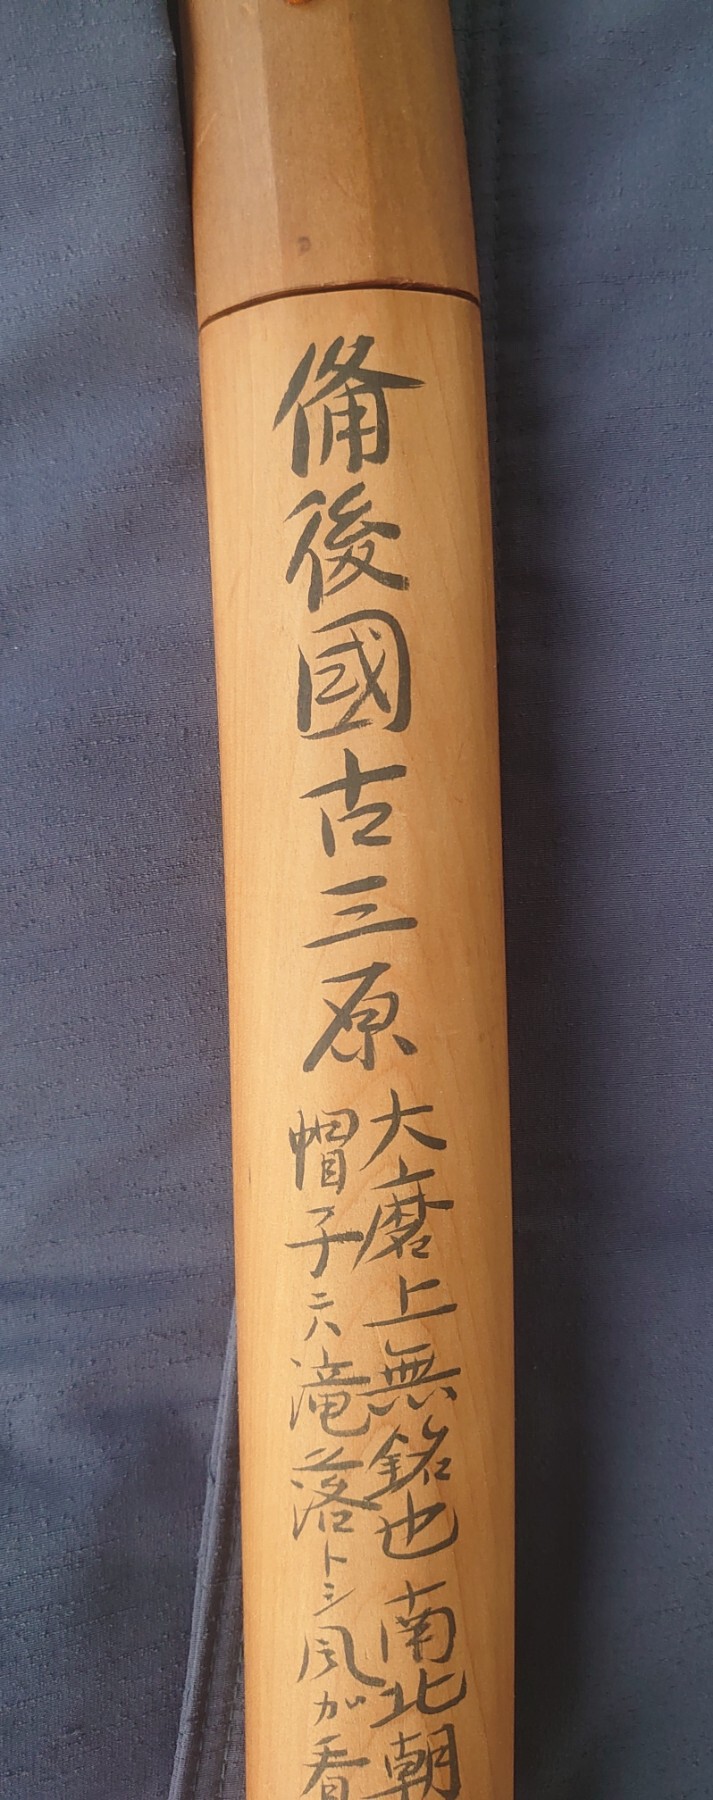 備後國古三原
大磨上無銘也南北朝
帽子ニハ滝落トシ風ガ看